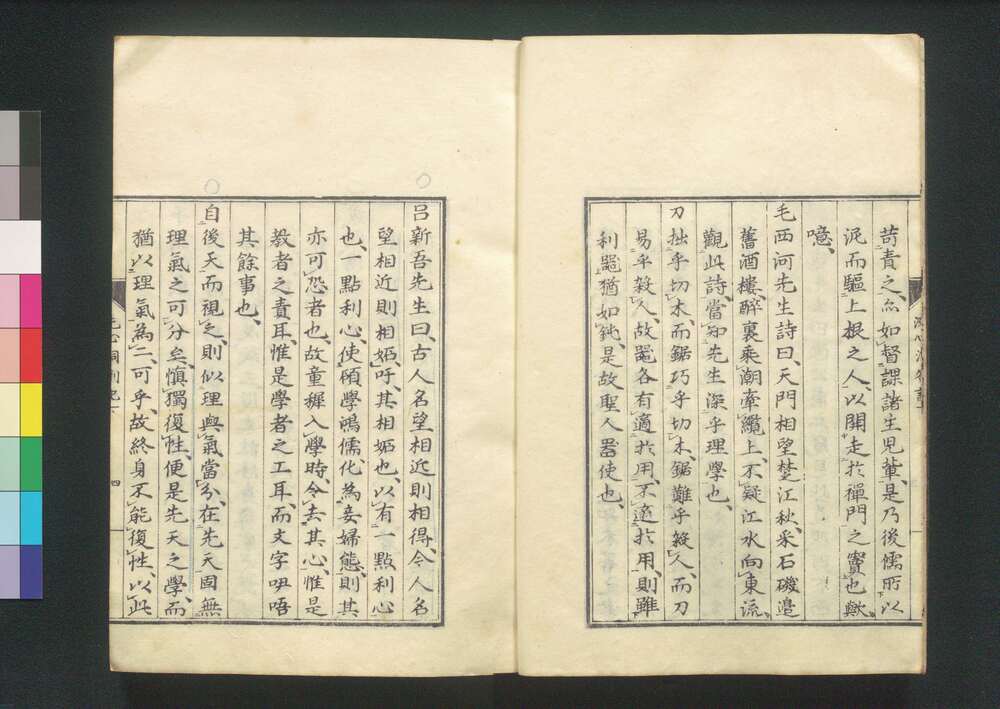 苛責之、亦如督課諸生児輩、是乃後儒所以
泥而驅上根之人、以開走於禪門之竇也歟、
噫、
毛西河先生詩曰、天門相望楚江秋、采石磯邉
舊酒樓、醉裏乘潮牽纜上、不疑江水向東流、
觀此詩、當知先生深乎理學也、
刀拙乎切木、而鋸巧乎切木、鋸難乎殺人、而刀
易乎殺人、故噐各有適於用、不適於用、則雖
利噐猶如鈍、是故聖人器使也、
呂新吾先生曰、古人名望相近則相得、今人名
望相近則相妬、吁、其相妬也、以有一點利心
也、一點利心、使碩學鴻儒化為妾婦態、則其
亦可恐者也、故童穉入學時、令去其心、惟是
教者之責耳、惟是學者之工耳、而文字呀唔
其餘事也、
自後天而視之、則似理與氣當分、在先天固無
理氣之可分矣、愼獨復性、便是先天之學、而
猶以理氣為二、可乎、故終身不能復性、以此
四